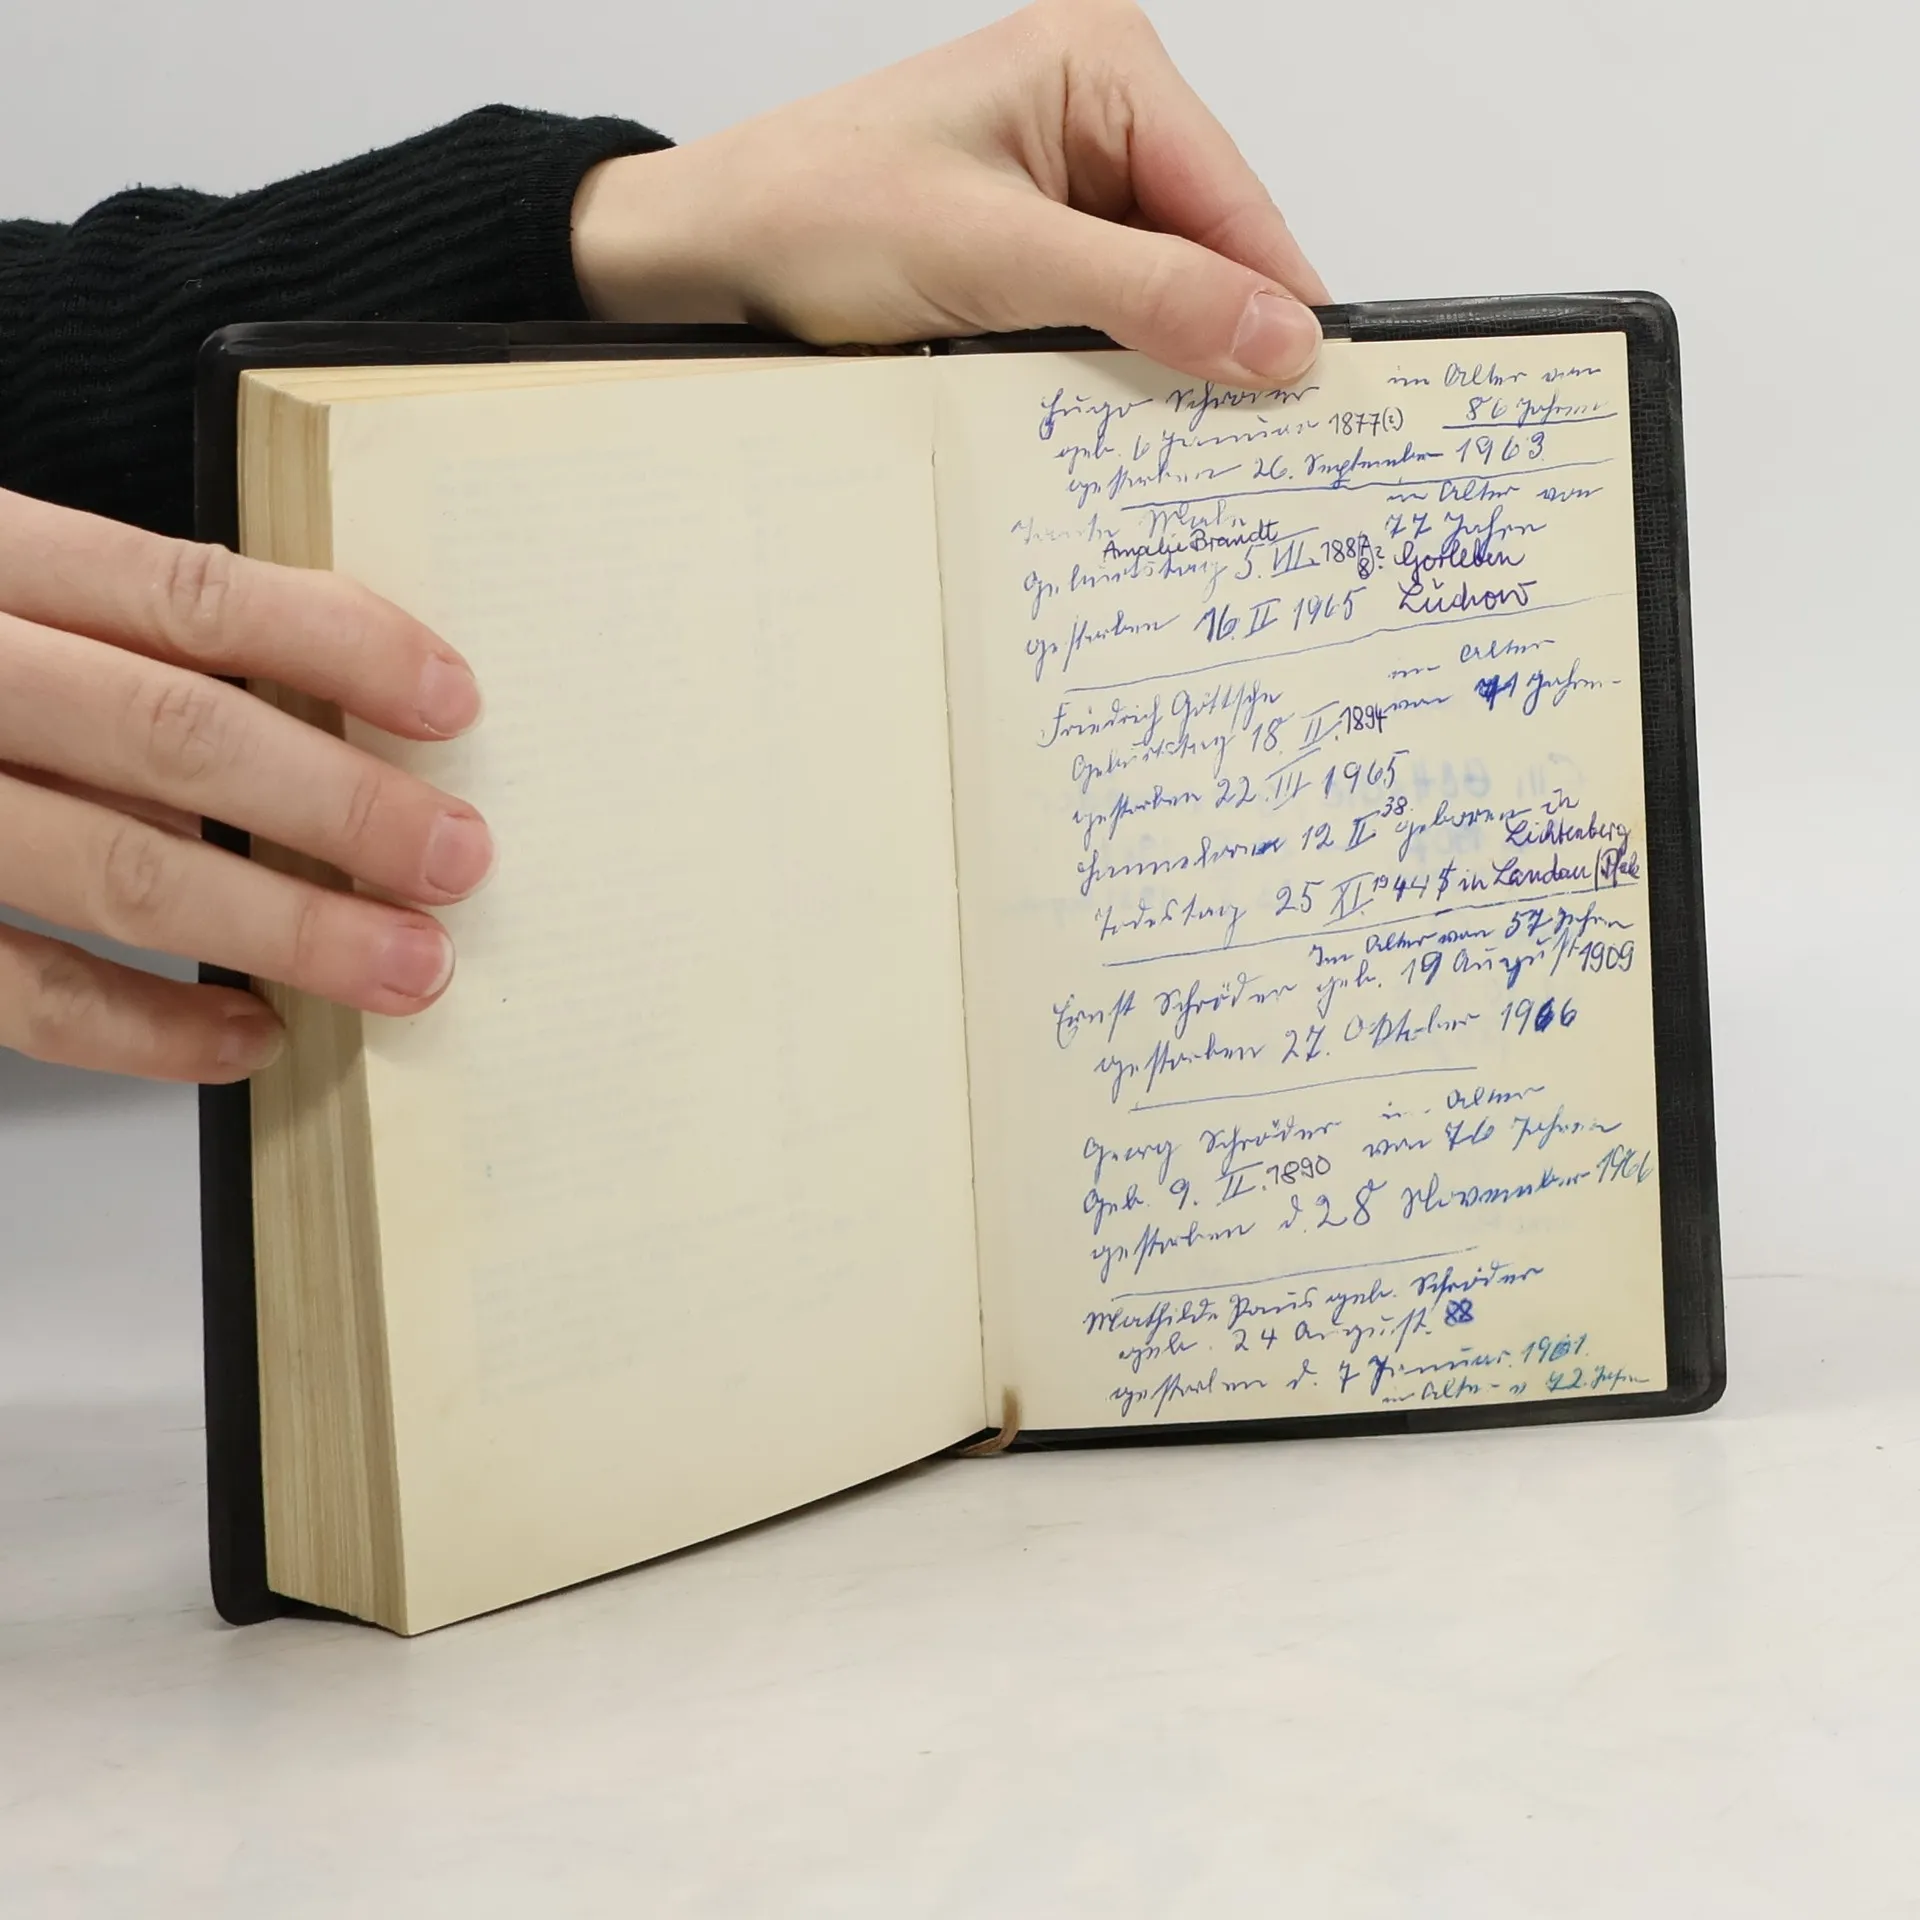 Hugo Schröder im Alter von
geb. 6 Januar 1877(?) 86 Jahren
gestorben 26. September 1963
im Alter von
77 Jahren
Amalie Brandt
Geburtstag 5. VII. 1887 8? Gorleben
gestorben 16. II 1965 Lüchow
im Alter
Friedrich Göttsche von 71 Jahren
Geburtstag 18. II. 1894
gestorben 22. III 1965
12 II 38. geboren in
Lichtenberg
Todestag 25 XI. 1944 in Landau/Pfalz
Im Alter von 57 Jahren
Ernst Schröder geb. 19 August 1909
gestorben 27. Oktober 1966
Georg Schröder im Alter
Geb. 9. II. 1890 von 76 Jahren
gestorben d. 28 November 1966
Mathilde Paus geb. Schröder
geb. 24 August 88
gestorben d. 7 Januar 1961.
im Alter v 72. Jahren